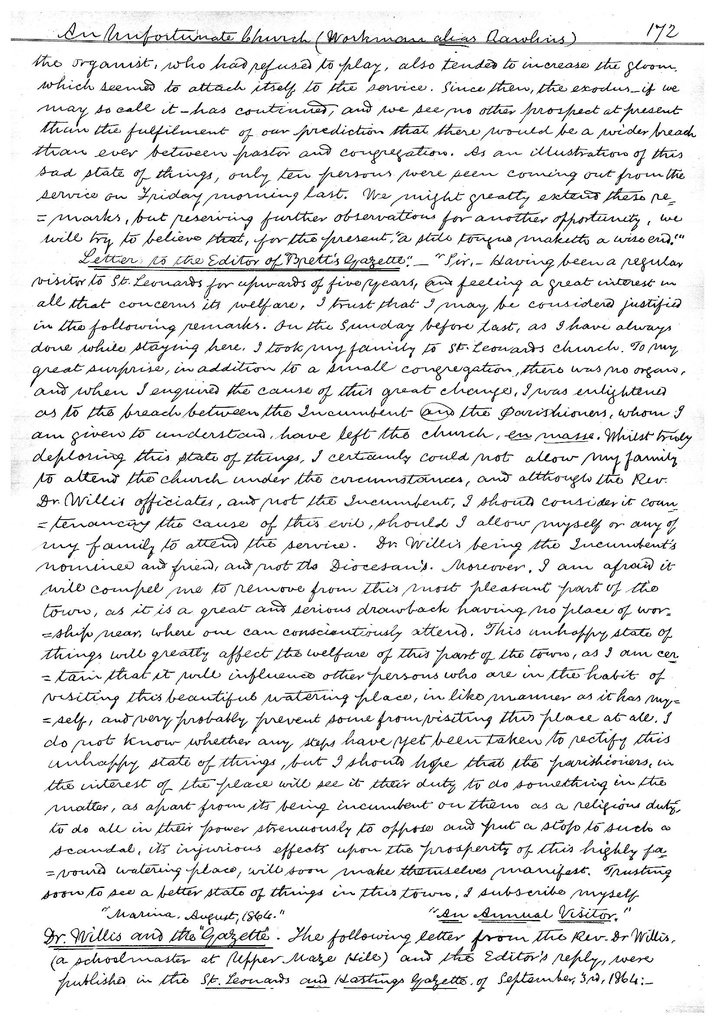 An Unfortunate Church (Workman alias Rawlins) 172
the organist, who had refused to play, also tended to increase the gloom
which seemed to attach itself to the service. Since then, the exodus—if we
may so call it—has continued, and we see no other prospect at present
than the fulfilment of our prediction that there would be a wider breach
than ever between pastor and congregation. As an illustration of this
sad state of things, only ten persons were seen coming out from the
service on Friday morning last. We might greatly extend these re=
=marks, but reserving further observations for another opportunity, we
will try to believe that, for the present, "a still tongue maketh a wise end."
Letter to the Editor of Brett's Gazette".— "Sir,— Having been a regular
visitor to St. Leonards for upwards of five years, and feeling a great interest in
all that concerns its welfare, I trust that I may be considered justified
in the following remarks. On the Sunday before last, as I have always
done while staying here, I took my family to St. Leonards church. To my
great surprise, in addition to a small congregation, there was no organ,
and when I enquired the cause of this great change, I was enlightened
as to the breach between the Incumbent and the Parishioners, whom I
am given to understand, have left the church, en masse. Whilst truly
deploring this state of things, I certainly could not allow my family
to attend the church under the circumstances, and although the Rev.
Dr. Willis officiates, and not the Incumbent, I should consider it coun=
=tenancing the cause of this evil, should I allow myself or any of
my family to attend the service. Dr. Willis being the Incumbent's
nominee and friend, and not the Diocesan's. Moreover, I am afraid it
will compel me to remove from this most pleasant part of the
town, as it is a great and serious drawback having no place of wor=
=ship near, where one can consciantiously attend. This unhappy state of
things will greatly affect the welfare of this part of the town, as I am cer=
=tain that it will influence other persons who are in the habit of
visiting this beautiful watering place, in like manner as it has my=
=self, and very probably prevent some from visiting the place at all. I
do not know whether any steps have yet been taken to rectify this
unhappy state of things, but I should hope that the parishioners, in
the interest of the place will see it their duty to do something in the
matter, as apart from its being incumbent on them as a religious duty,
to do all in their power strenuously to oppose and put a stop to such a
scandal, its injurious effects upon the prosperity of this highly fa=
=voured watering place, will soon make themselves manifest. Trusting
soon to see a better state of things in this town, I subscribe myself
"Marina, August, 1864." "An Annual Visitor."
Dr. Willis and the "Gazette". The following letter from the Rev. Dr Willis,
(a schoolmaster at Upper Maze Hill) and the Editor's reply, were
published in the St. Leonards and Hastings Gazette, of September, 3rd, 1864:—